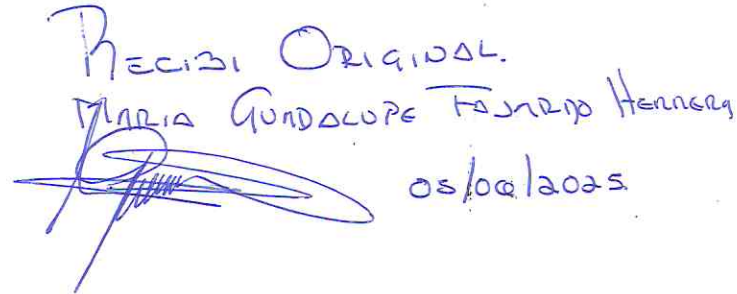 RECIBI ORIGINAL.
MARIA GUADALUPE FAJARDO HERRERA
05/06/2025